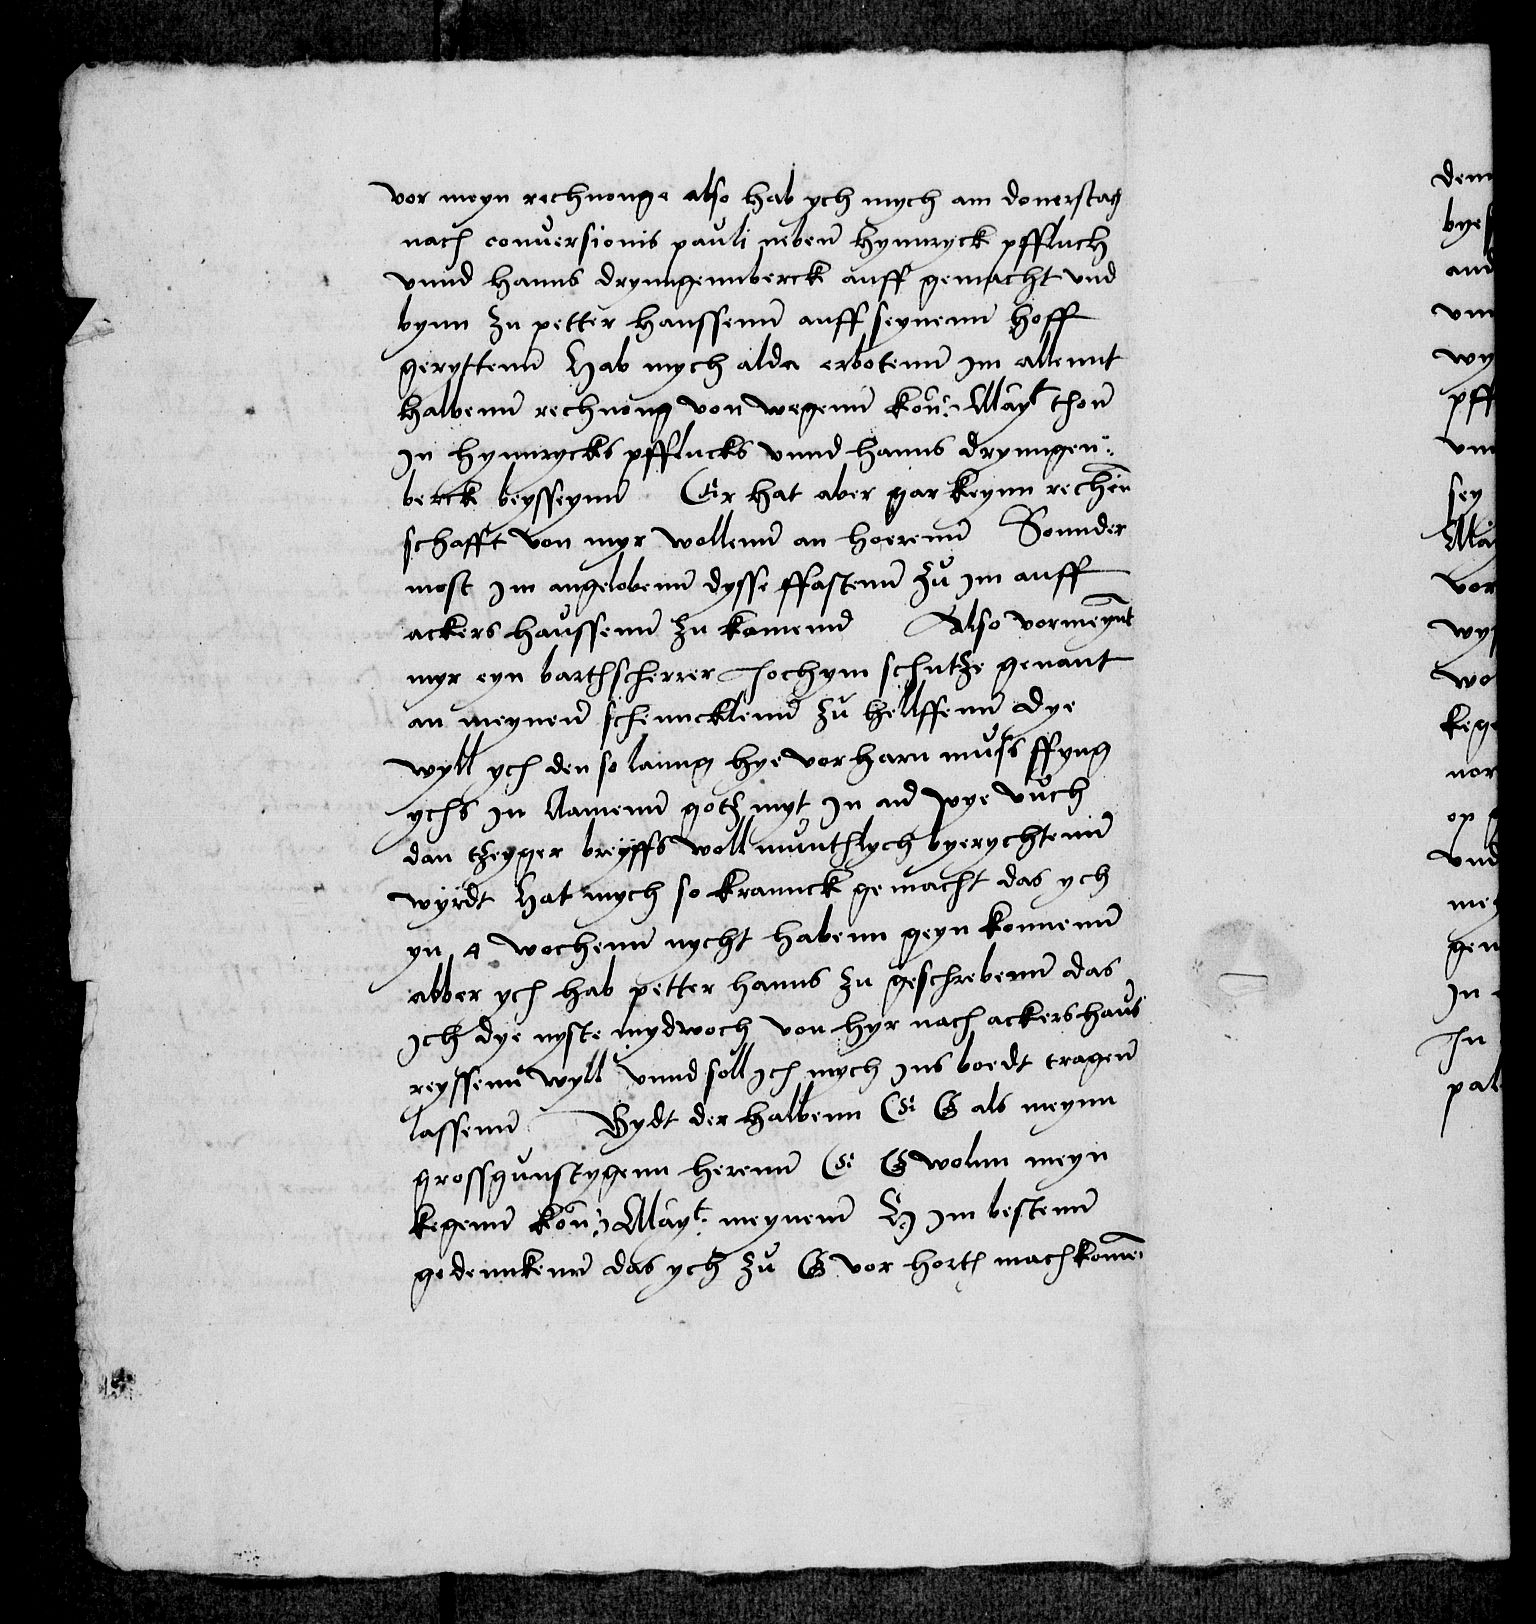 vor meyn rechnonge also hab ych mych am donerstag
nach conversionis pauli nebenn hynnryck pffluch
vnnd hanns drynngennberck auff gemacht vnd
bynn zu petter hanssenn auff seynenn hoff
geryttenn Hab mych alda erbotenn im allennt
halbenn rechnong von wegenn kon: Mayt thon
in hynnrycks pfflucks vnnd hanns drynngen:
berck beysseynn Er hat aber gar keynn rechen
schafft von myr wollenn an hoerenn Sonnder
most im angelobenn dysse ffastenn zu im auff
ackers haussenn zu komenn Also vormeynt
myr eyn barthscherrer Jochym schutze genant
an meynen schenncklenn zu hellffenn dye
wyll ych den so lanng hye vorharn muss ffyng
ychs in Namenn gotz myt in an wye
dan tzeyger breyffs woll munthlych byerychtenn
wyrdt Hat mych so krannck gemacht das ych
yn 4 wochenn nycht habenn geyn konnenn
abber ych hab petter hanns zu geschrebenn das
ich dye nyste mydwoch von hyr nach ackershaus
reyssenn wyll vnnd soll ich mych ins boedt tragen
lassenn Bydt der halbenn E G als meynn
grossgunstygenn herenn E G wolnn meyn
kegenn kon: Mayt: meynenn H im bestenn
gedennkenn das ych zu G vor horth mach komen